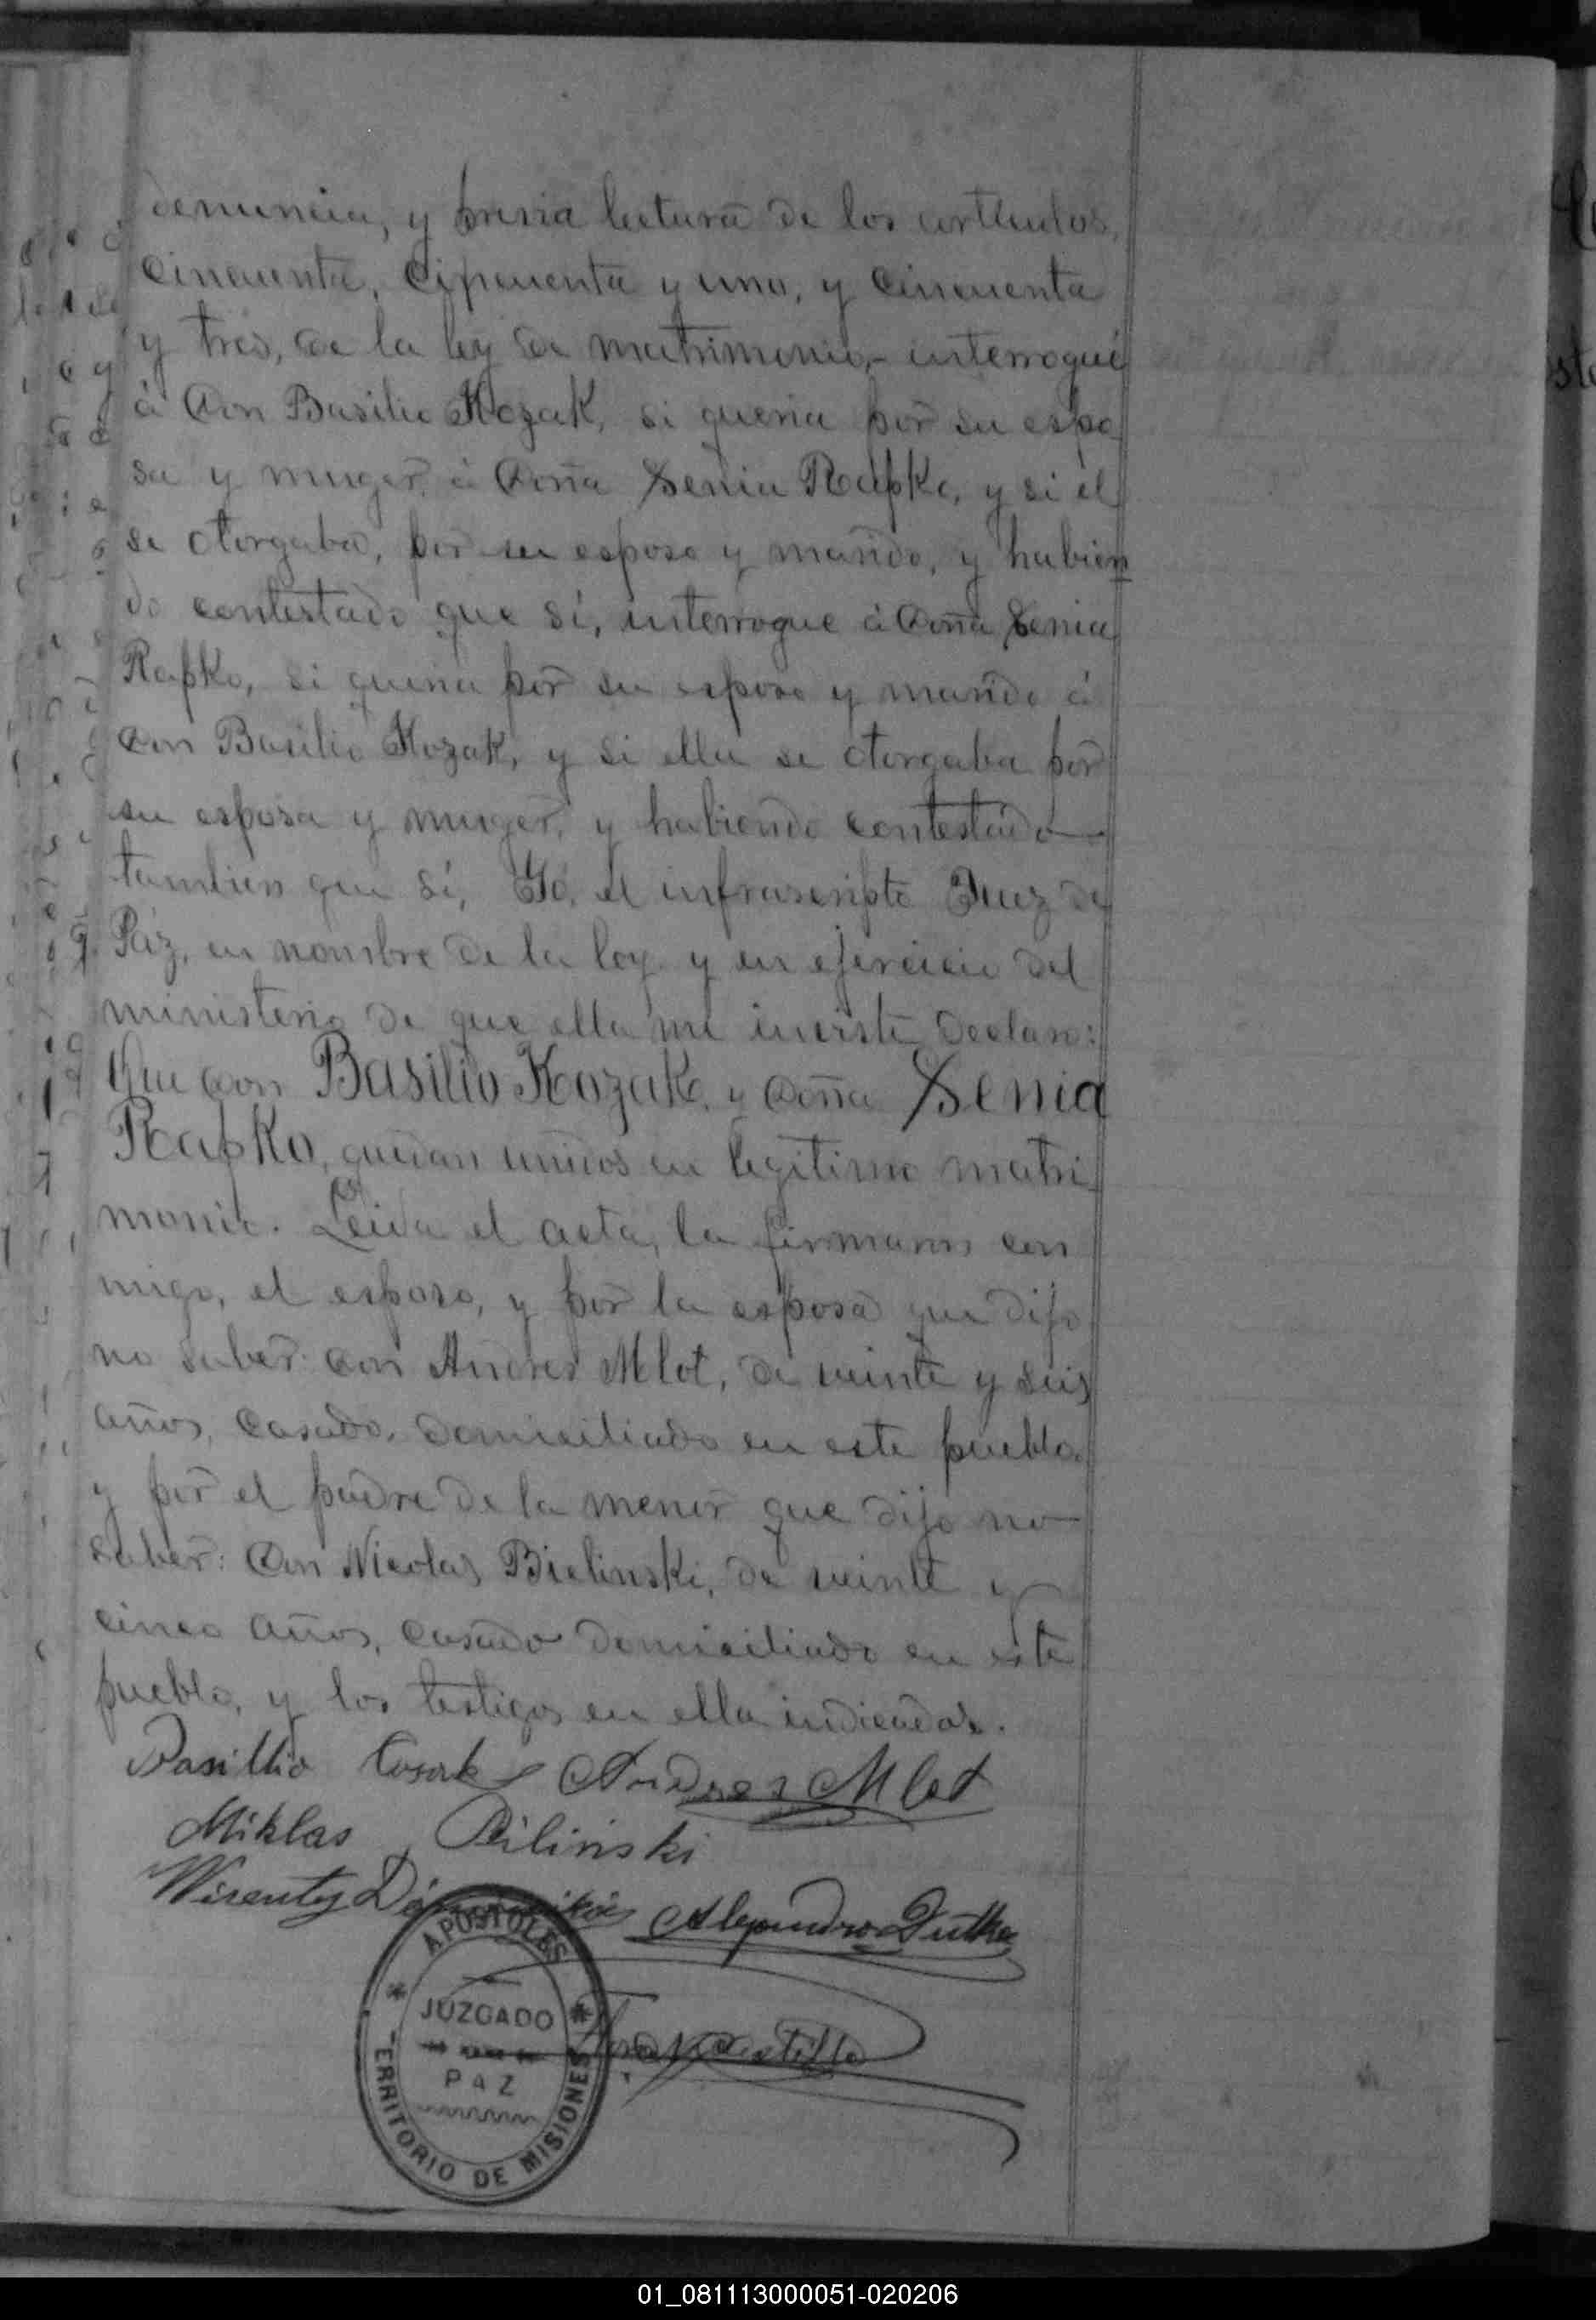 denuncia, y previa lectura de los artículos,
cincuenta, cincuenta y uno, y cincuenta
y tres, de la ley de matrimonio,- interrogué
á Don Basilio Kozak, si queria por su espo
sa y muger, á Doña Senia Rapko, y si él
se otorgaba, por su esposo y marido, y habien
do contestado que sí, interrogue á Doña Senia
Rapko, si queria por su esposo y marido á
Don Basilio Kozak, y si ella se otorgaba por
su esposa y muger, y habiendo contestado
tambien que sí, Yó, el infrascripto Juez de
Páz, en nombre de la ley y en ejercicio del
ministerio de que ella me inviste declaro:
Que Don Basilio Kozak, y Doña Senia
Rapko, quedan unidos en legítimo matri
monio. Leida el acta, la firmaron con
migo, el esposo, y por la esposa que dijo
no saber: Don Andres Mlot, de veinte y seis
años, casado, domiciliado en este pueblo,
y por el padre de la menor que dijo no
saber: Don Nicolas Bielinski, de veinte y
cinco años, casado domiciliado en este
pueblo, y los testigos en ella indicados.
Basilio Cosak Andres Mlot
Miklas Bilinski
Alejandro
APOSTOLES
JUZGADO
PAZ
TERRITORIO DE MISIONES
01_081113000051-020206